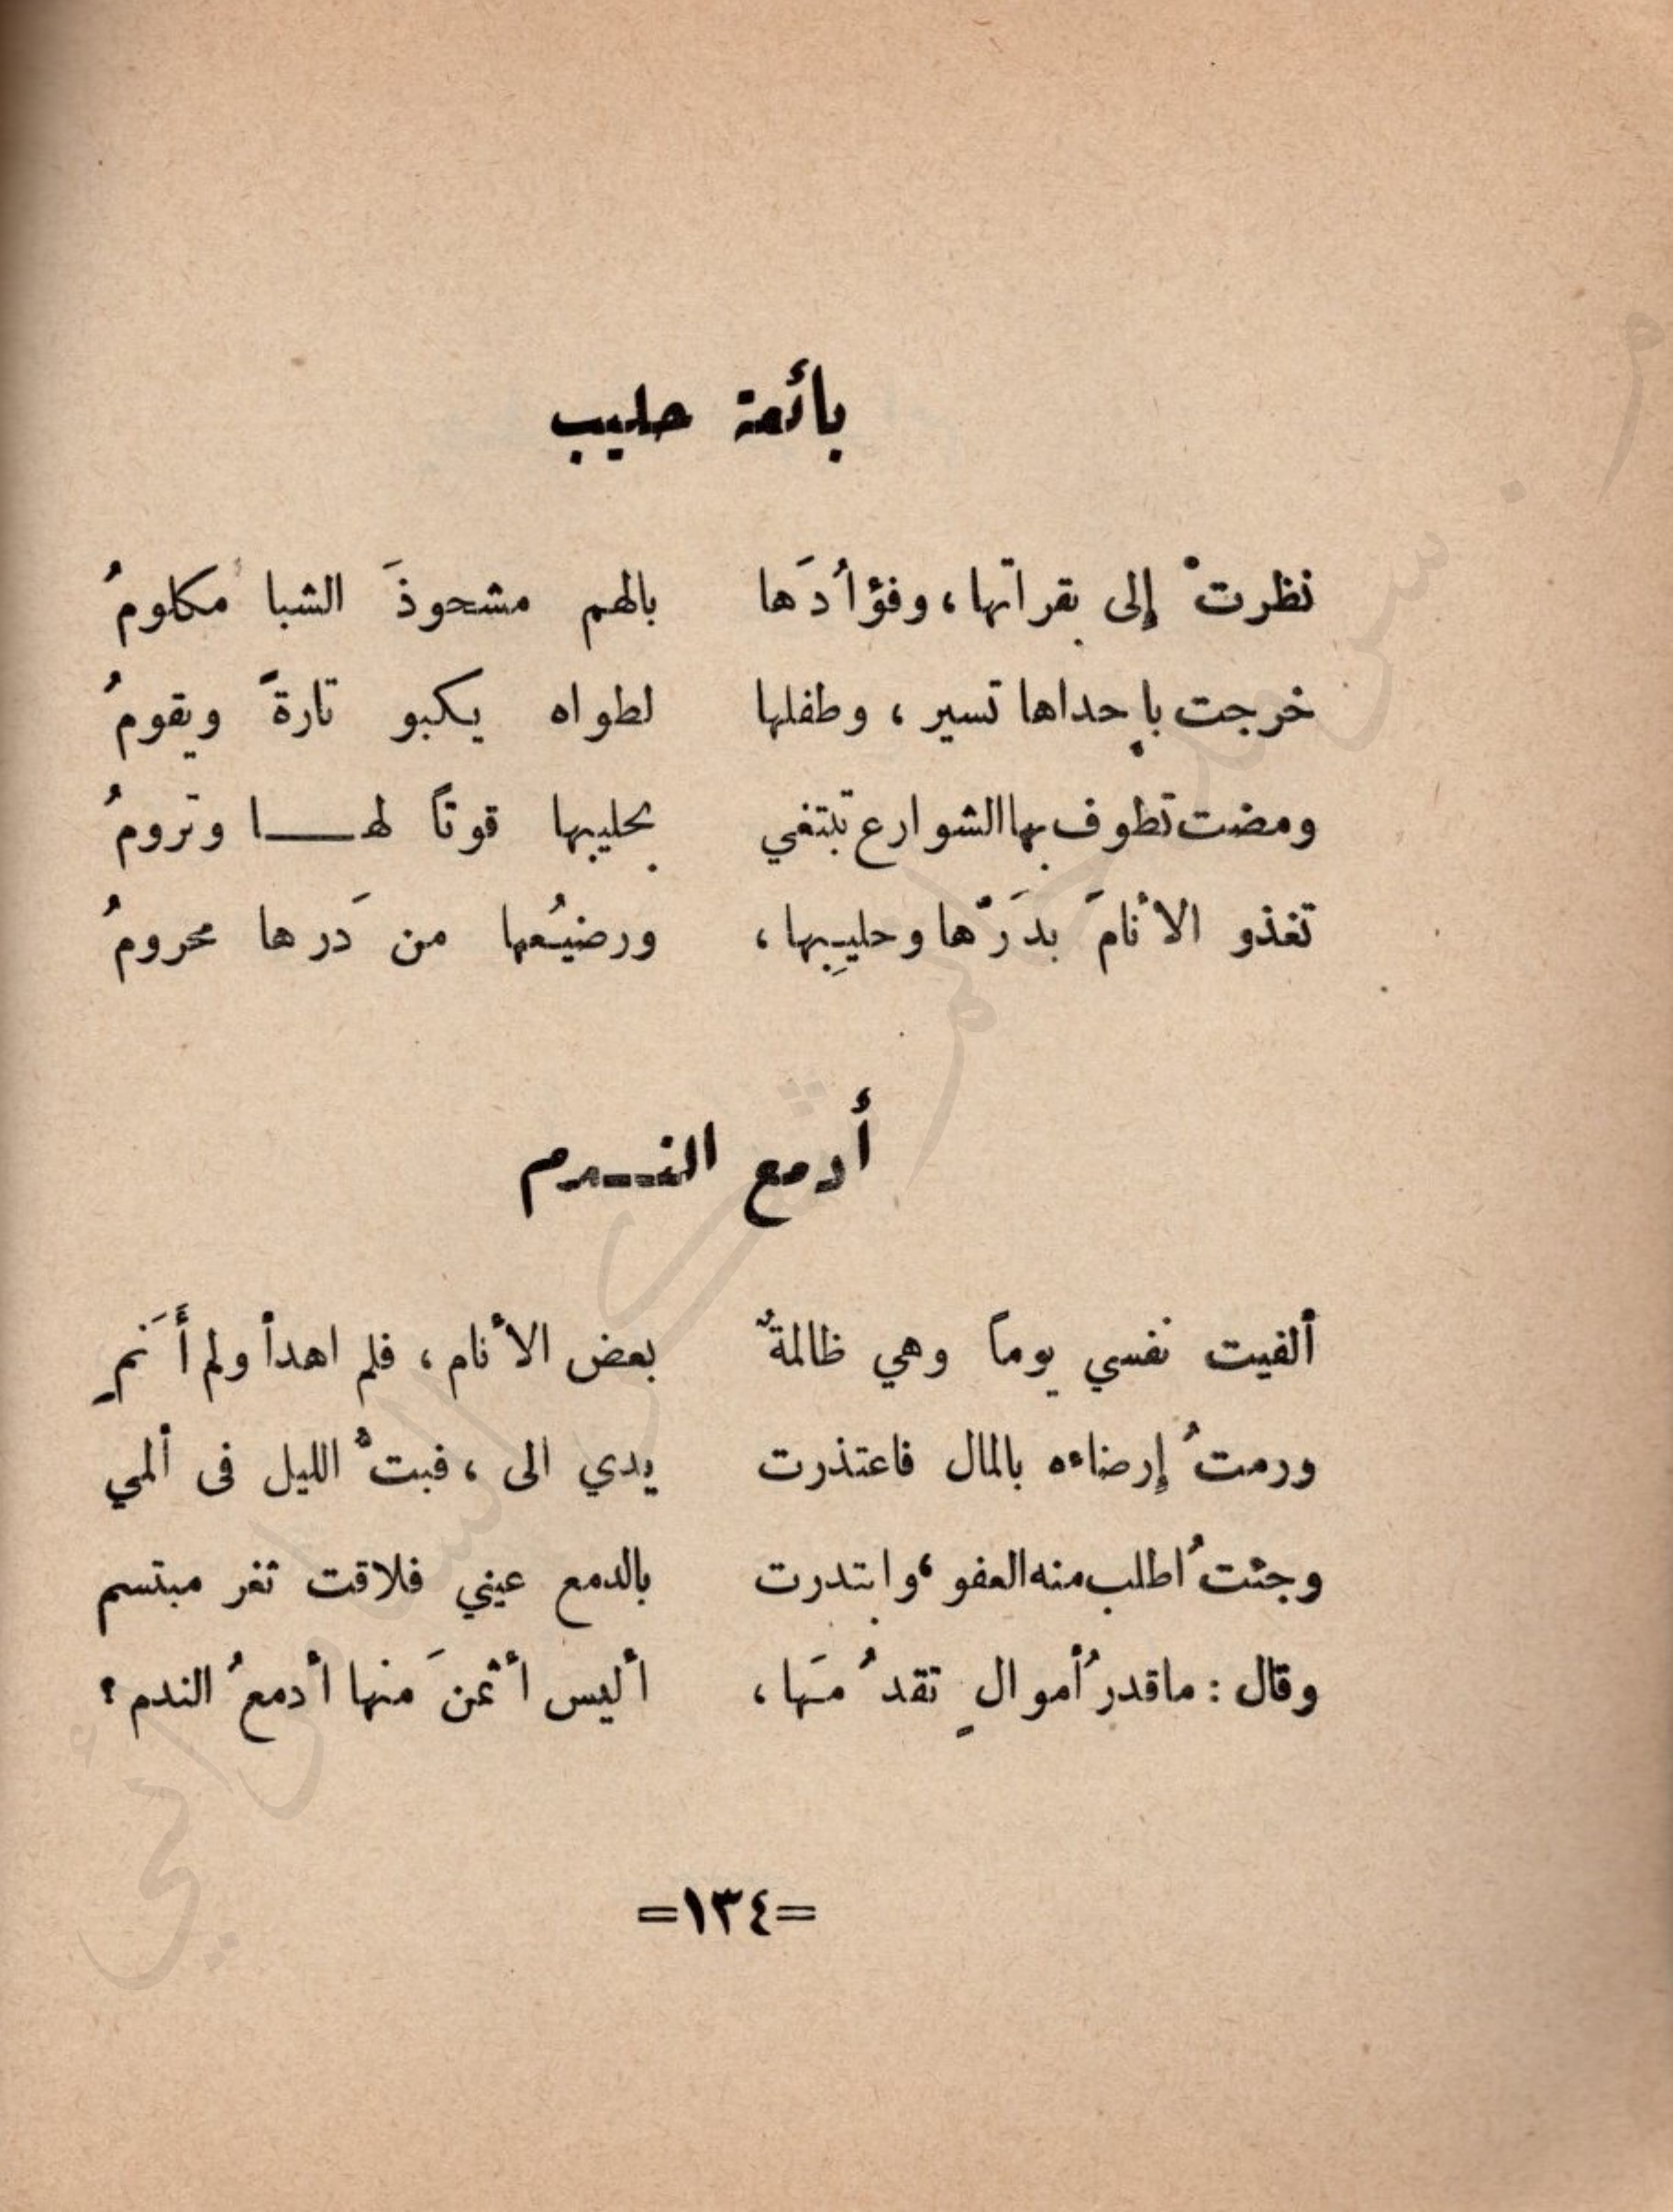 بائعة حليب
نظرتْ إلى بقراتها، وفؤادَها بالهم مشحوذَ الشبا مكلومُ
خرجت بإحداها تسير، وطفلها لطواه يكبو تارةً ويقومُ
ومضت تطوف بها الشوارع تبتغي بحليبها قوتاً لهـــا وترومُ
تغذو الأنامَ بدَرّها وحليبِها، ورضيعُها من دَرها محرومُ
أدمع النـــدم
ألفيت نفسي يوماً وهي ظالمةٌ بعض الأنام، فلم اهدأ ولم أَنَمِ
ورمتُ إرضاءه بالمال فاعتذرت يدي الى، فبتُّ الليل فى ألمي
وجئتُ اطلب منه العفو، وابتدرت بالدمع عيني فلاقت ثغر مبتسم
وقال: ماقدرُ أموالٍ تقدُمَها، أليس أثمنَ منها أدمعُ الندم؟
=١٣٤=